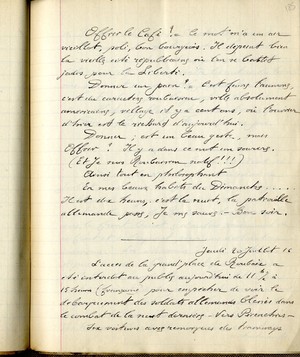 Offrir le Café !.. Ce mot m'a un air
vieillot, poli, bon bourgeois. Il
la vieille cité républicaine où l'on se battit
jadis pour la Liberté.
Donner un pain ? C'est faire l'aumône,
c'est du caractère roubaisien, ville absolument
, village il y a cent ans, où l'ouvrier
d'hier est le richard d'aujourd'hui.
Donner, est un beau geste, mais
Offrir ! Il y a dans ce mot un sourire.
(Et je suis Roubaisien natif !!!)
Ainsi tout en philosophant
En mes beaux habits du Dimanche.....
Il est dix heures, c'est la nuit, la patrouille
allemande passe, je me sauve. Bon soir.
Jeudi 20 Juillet 16
L'accès de la grand place de Roubaix a
été interdit au public aujourd'hui de 11 h 1/2 à
15 heures (françaises) pour empêcher de voir le
débarquement des soldats allemands blessés dans
le combat de la nuit dernière - Vers
Six voitures avec remorques des tramways